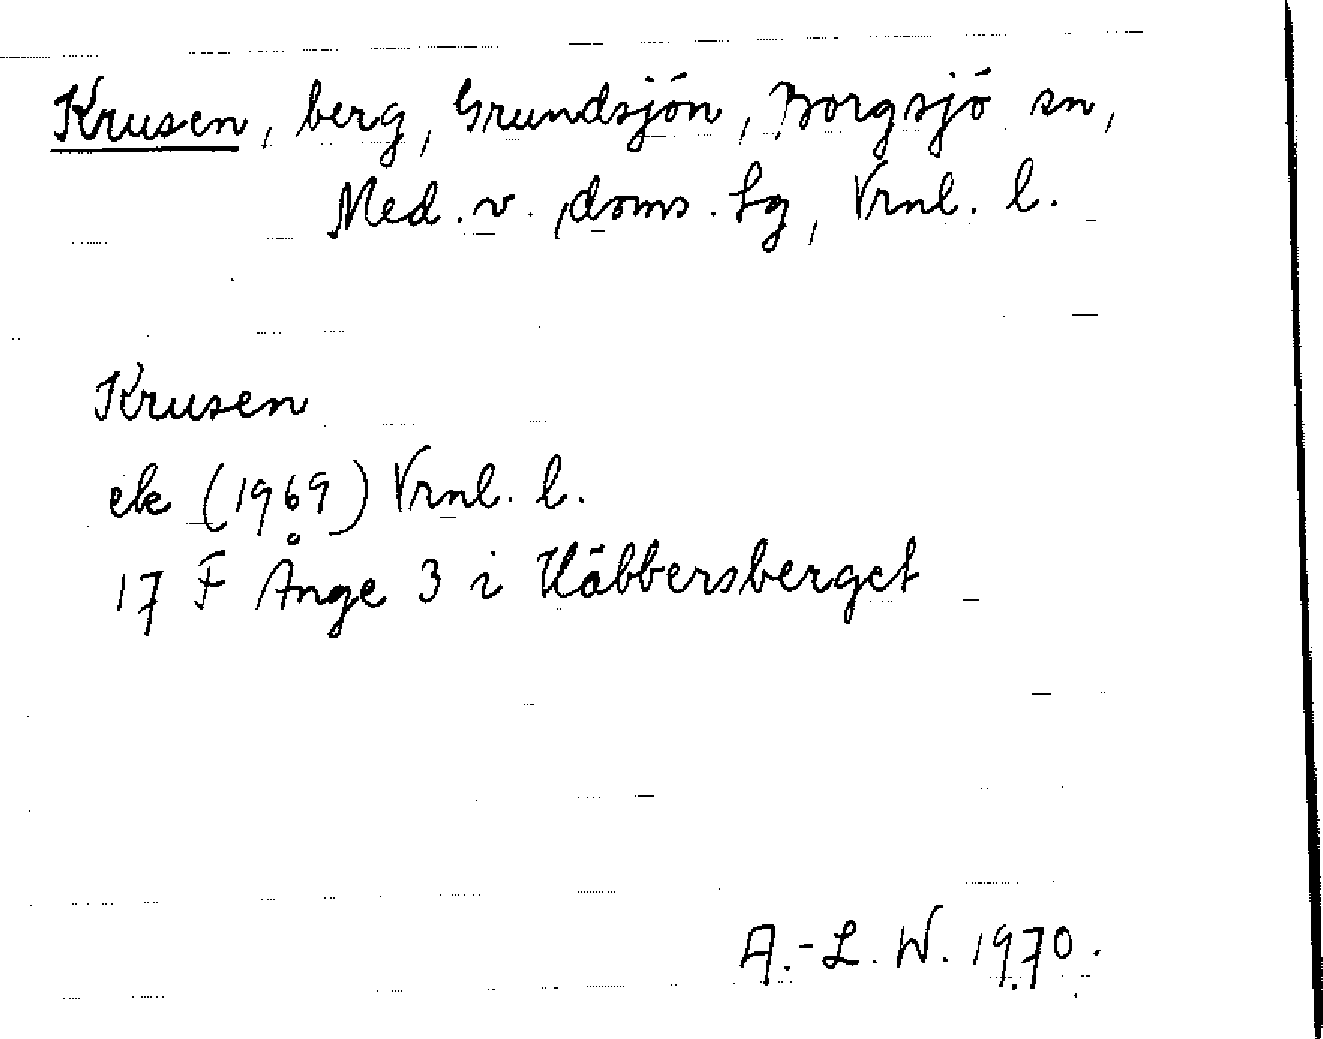 Krusen, berg, Grundsjön, Borgsjö sn,
Med. v. doms. sg, Vrnl. l.
Krusen
ek (1969) Vrnl. l.
17 F Ånge 3 i Häbbersberget
A.-L. W. 1970.